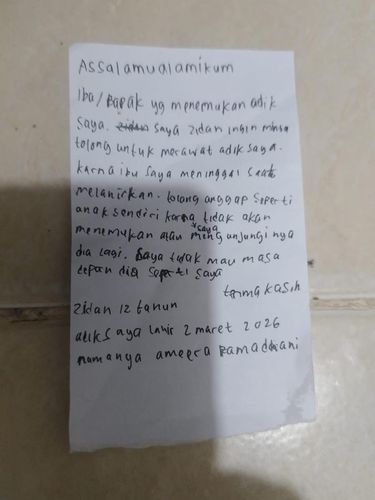 Assalamualamikum
iba/Bapak yg menemukan adik
saya. zidan saya zidan ingin minsa
tolong untuk merawat adik saya.
karna ibu saya meninggal saat
melanirkan. tolong anggap seperti
anak sendiri karna tidak akan
menemukan atau mengunjungi nya
saya
dia lagi. saya tidak mau masa
depan dia seperti saya
terma kasih
zidan 12 tahun
adik saya lahir 2 maret 2026
namanya ameera ramadhani